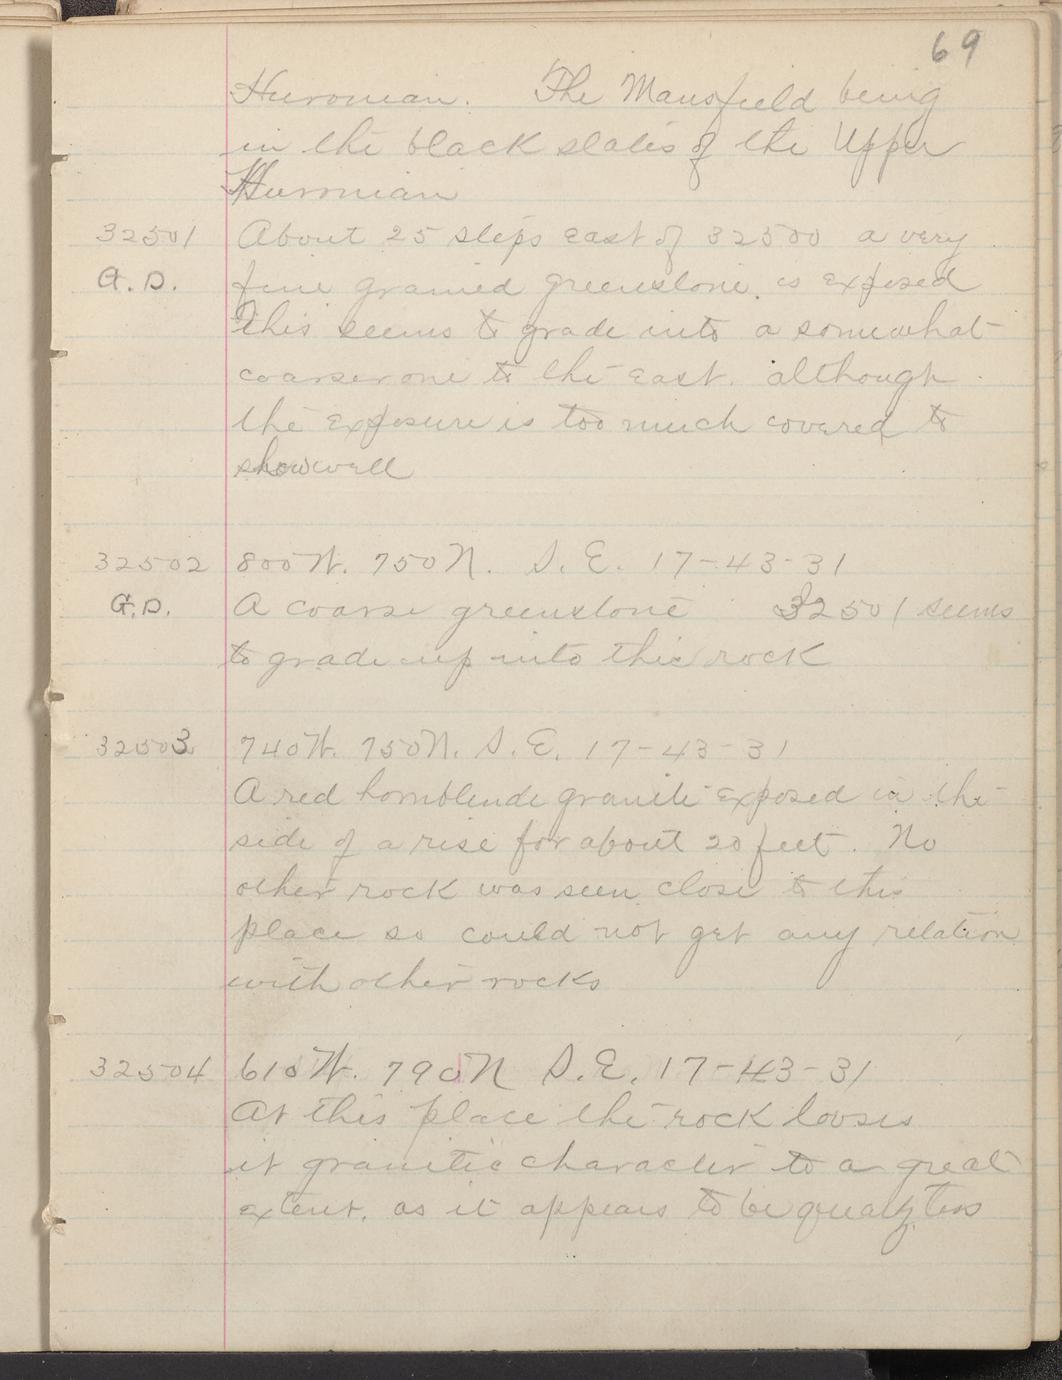 69
Huronian. The Mansfield being
in the black slates of the Upper
Huronian
32501 About 25 steps east of 32500 a very
G.D. fine grained greenstone. is exposed
This seems to grade into a somewhat
coarser one to the east. although
the exposure is too much covered to
show well
32502 800 W. 750 N. S.E. 17-43-31
G.D. A coarse greenstone 32501 seems
to grade up into this rock
32503 740 W. 750 N. S.E. 17-43-31
A red hornblende granite exposed in the
side of a rise for about 20 feet. No
other rock was seen close to this
place so could not get any relation
with other rocks
32504 610 W. 790 N S.E. 17-43-31
At this place the rock looses
it granitic character to a great
extent. as it appears to be quartzless